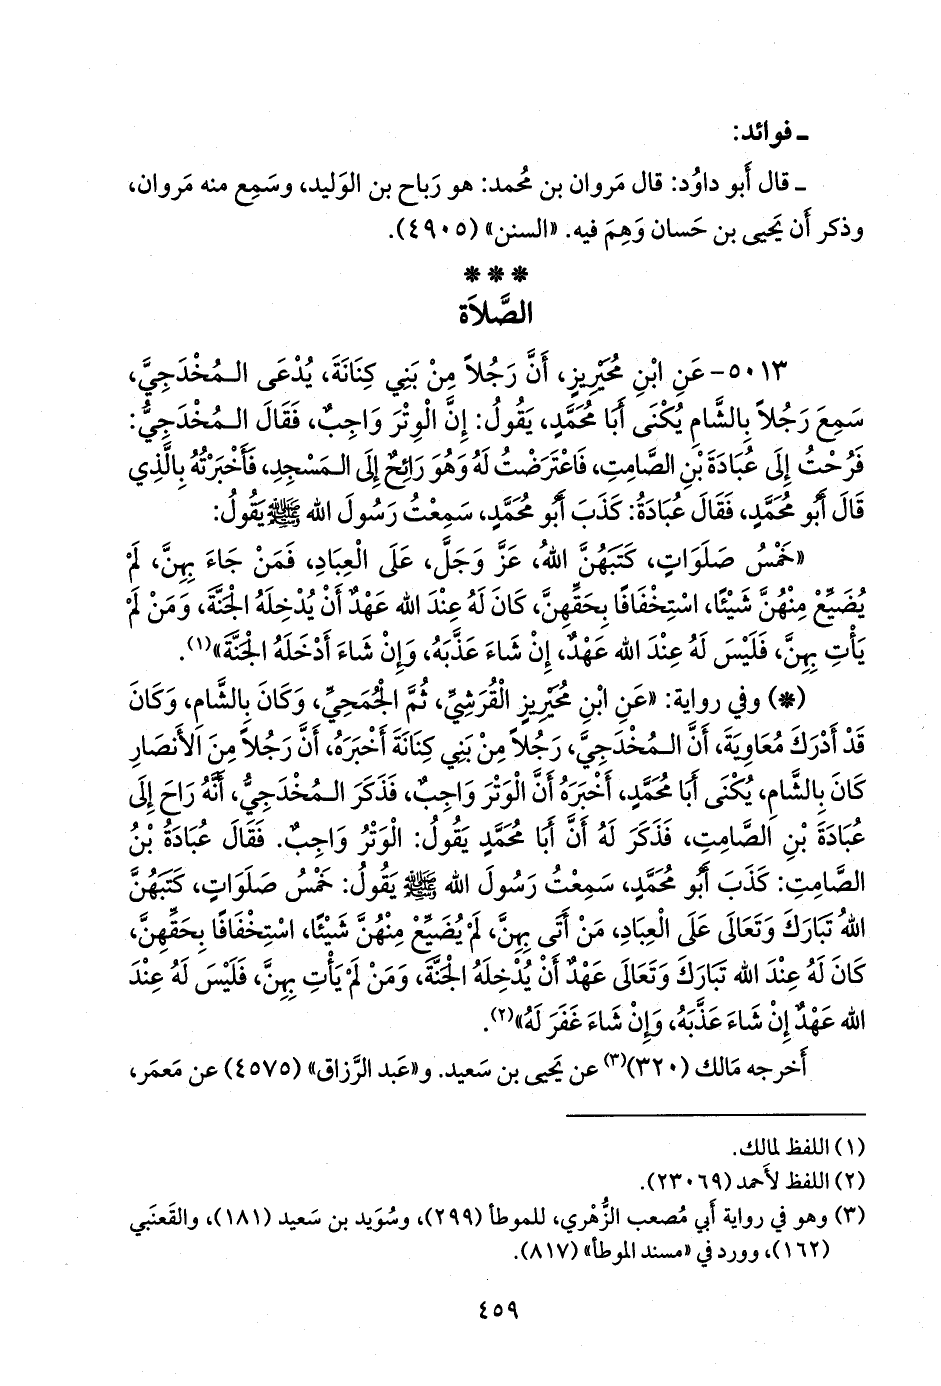 ـ فوائد:
ـ قال أَبو داوُد: قال مَروان بن مُحمد: هو رَباح بن الوَليد، وسَمِع منه مَروان،
وذكر أَن يَحيى بن حَسان وَهِمَ فيه. «السنن» (٤٩٠٥).
* * *
الصَّلاَة
٥٠١٣- عَنِ ابْنِ مُحَيْرِيزٍ، أَنَّ رَجُلاً مِنْ بَنِي كِنَانَةَ، يُدْعَى الـمُخْدَجِيَّ،
سَمِعَ رَجُلاً بِالشَّامِ يُكْنَى أَبَا مُحَمَّدٍ، يَقُولُ: إِنَّ الْوِتْرَ وَاجِبٌ، فَقَالَ الـمُخْدَجِيُّ:
فَرُحْتُ إِلَى عُبَادَةَ بْنِ الصَّامِتِ، فَاعْتَرَضْتُ لَهُ وَهُوَ رَائِحٌ إِلَى الـمَسْجِدِ، فَأَخْبَرْتُهُ بِالَّذِي
قَالَ أَبُو مُحَمَّدٍ، فَقَالَ عُبَادَةُ: كَذَبَ أَبُو مُحَمَّدٍ، سَمِعْتُ رَسُولَ الله ﷺ يَقُولُ:
«خَمْسُ صَلَوَاتٍ، كَتَبَهُنَّ اللهُ، عَزَّ وَجَلَّ، عَلَى الْعِبَادِ، فَمَنْ جَاءَ بِهِنَّ، لَمْ
يُضَيِّعْ مِنْهُنَّ شَيْئًا، اسْتِخْفَافًا بِحَقِّهِنَّ، كَانَ لَهُ عِنْدَ الله عَهْدٌ أَنْ يُدْخِلَهُ الْجَنَّةَ، وَمَنْ لَمْ
يَأْتِ بِهِنَّ، فَلَيْسَ لَهُ عِنْدَ الله عَهْدٌ، إِنْ شَاءَ عَذَّبَهُ، وَإِنْ شَاءَ أَدْخَلَهُ الْجَنَّةَ»(١).
(*) وفي رواية: «عَنِ ابْنِ مُحَيْرِيزٍ الْقُرَشِيِّ، ثُمَّ الْجُمَحِيِّ، وَكَانَ بِالشَّامِ، وَكَانَ
قَدْ أَدْرَكَ مُعَاوِيَةَ، أَنَّ الـمُخْدَجِيَّ، رَجُلاً مِنْ بَنِي كِنَانَةَ أَخْبَرَهُ، أَنَّ رَجُلاً مِنَ الأَنصَارِ
كَانَ بِالشَّامِ، يُكْنَى أَبَا مُحَمَّدٍ، أَخْبَرَهُ أَنَّ الْوَتْرَ وَاجِبٌ، فَذَكَرَ الـمُخْدَجِيُّ، أَنَّهُ رَاحَ إِلَى
عُبَادَةَ بْنِ الصَّامِتِ، فَذَكَرَ لَهُ أَنَّ أَبَا مُحَمَّدٍ يَقُولُ: الْوَتْرُ وَاجِبٌ. فَقَالَ عُبَادَةُ بْنُ
الصَّامِتِ: كَذَبَ أَبُو مُحَمَّدٍ، سَمِعْتُ رَسُولَ الله ﷺ يَقُولُ: خَمْسُ صَلَوَاتٍ، كَتَبَهُنَّ
اللهُ تَبَارَكَ وَتَعَالَى عَلَى الْعِبَادِ، مَنْ أَتَى بِهِنَّ، لَمْ يُضَيِّعْ مِنْهُنَّ شَيْئًا، اسْتِخْفَافًا بِحَقِّهِنَّ،
كَانَ لَهُ عِنْدَ الله تَبَارَكَ وَتَعَالَى عَهْدٌ أَنْ يُدْخِلَهُ الْجَنَّةَ، وَمَنْ لَمْ يَأْتِ بِهِنَّ، فَلَيْسَ لَهُ عِنْدَ
الله عَهْدٌ إِنْ شَاءَ عَذَّبَهُ، وَإِنْ شَاءَ غَفَرَ لَهُ»(٢).
أَخرجه مَالك (٣٢٠)(٣) عن يَحيى بن سَعيد. و«عَبد الرَّزاق» (٤٥٧٥) عن مَعمَر،
(١) اللفظ لمالك.
(٢) اللفظ لأَحمد (٢٣٠٦٩).
(٣) وهو في رواية أَبي مُصعب الزُّهْري، للموطأ (٢٩٩)، وسُوَيد بن سَعيد (١٨١)، والقَعنَبي
(١٦٢)، وورد في «مسند الموطأ» (٨١٧).
٤٥٩